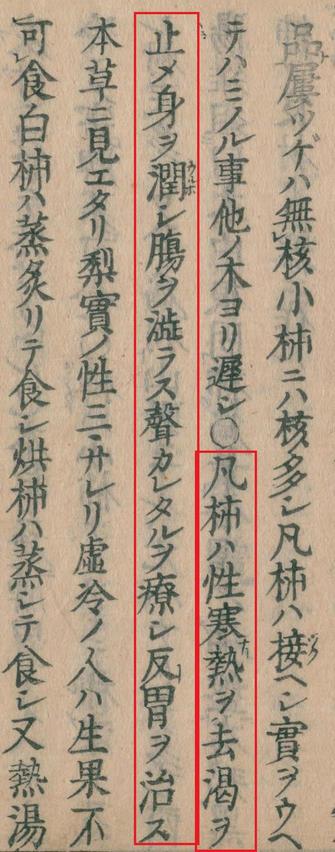 品屢ツゲハ無核小柿ニハ核多シ凡柿ハ接ヘシ實ヲウヘ
テハミノル事他ノ木ヨリ遲シ〇凡柿ハ性寒熱ヲ去渇ヲ
止メ身ヲ潤シ膓ヲ澁ラス聲カレタルヲ療シ反胃ヲ治ス
本草ニ見エタリ梨實ノ性ニ三サレリ虛冷ノ人ハ生果不
可食白柿ハ蒸炙リテ食シ烘柿ハ蒸シテ食シ又熱湯